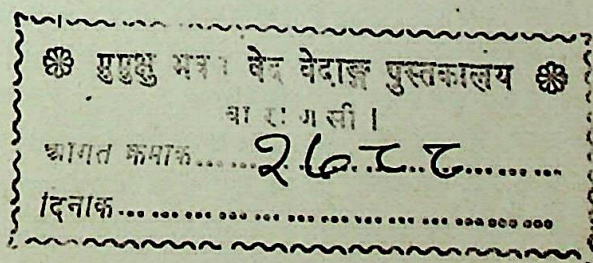 ❁ मुमुक्षु भवन वेद वेदाङ्ग पुस्तकालय ❁
वाराणसी ।
आगत क्रमांक......२७८८......
दिनांक......